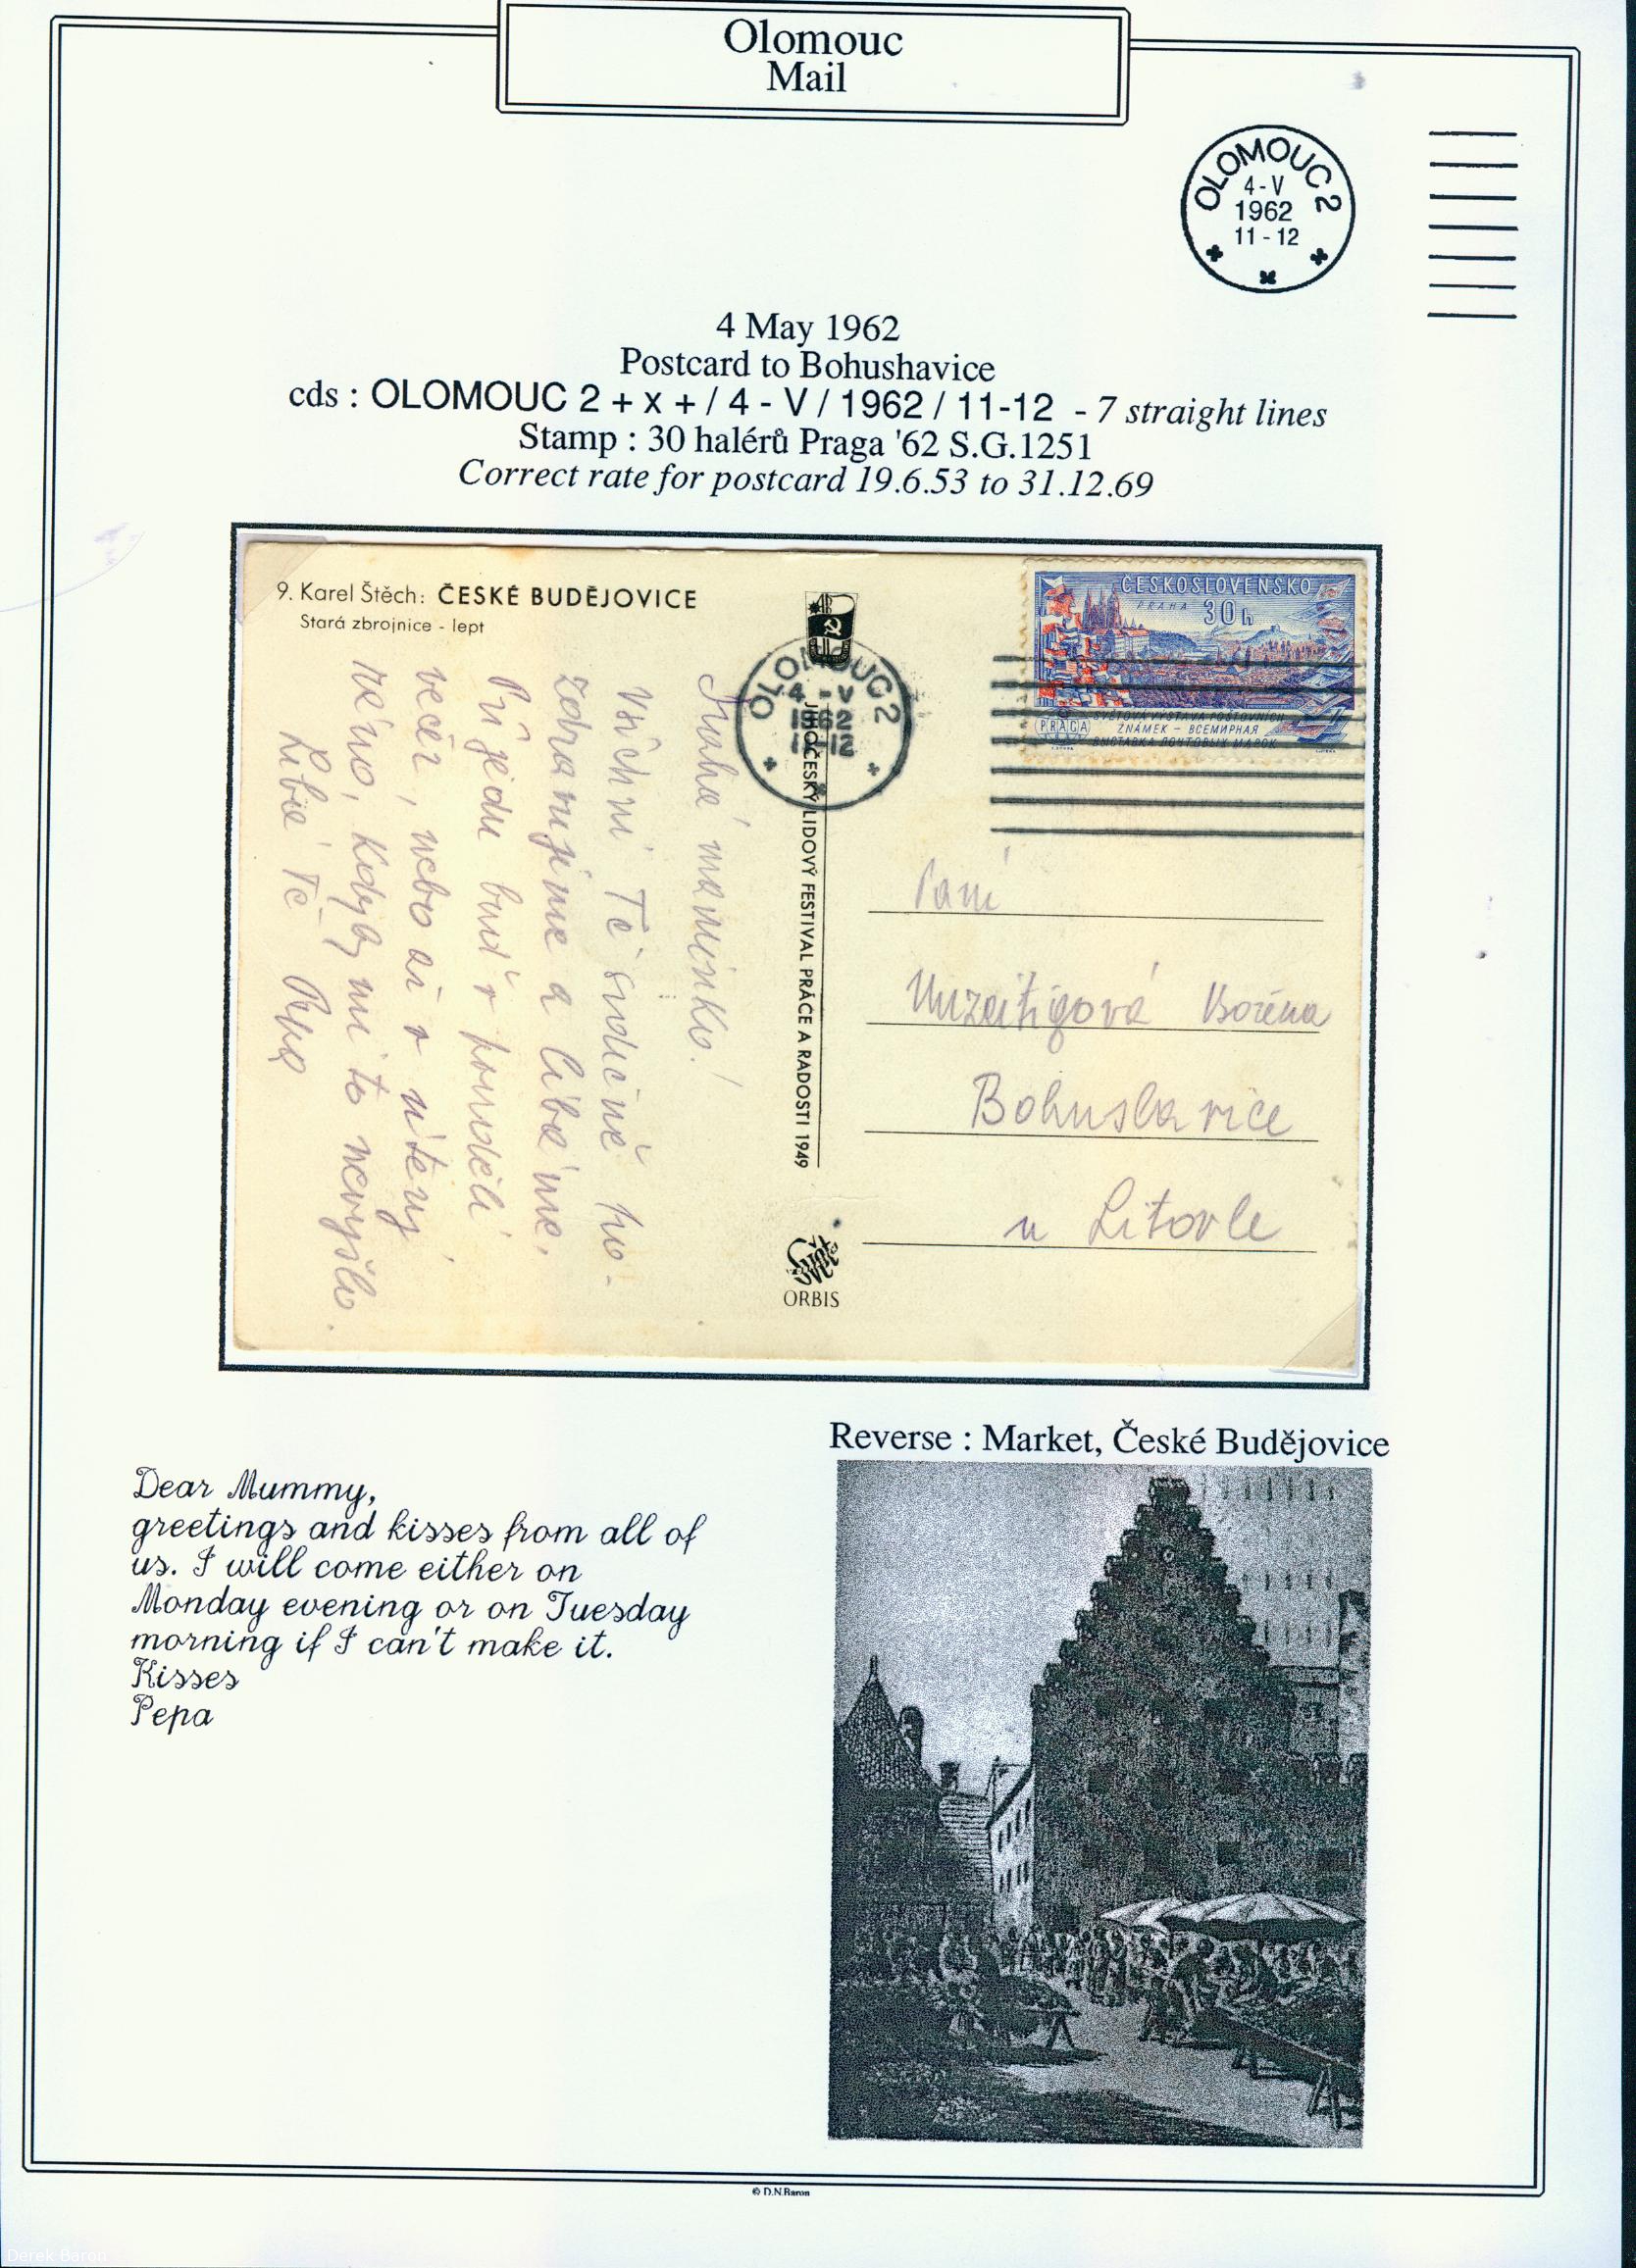 Olomouc
Mail
OLOMOUC 2
4 - V
1962
11 - 12
4 May 1962
Postcard to Bohushavice
cds : OLOMOUC 2 + x + / 4 - V / 1962 / 11-12 - 7 straight lines
Stamp : 30 halérů Praga '62 S.G.1251
Correct rate for postcard 19.6.53 to 31.12.69
9. Karel Štěch: ČESKÉ BUDĚJOVICE
Stará zbrojnice - lept
ČESKOSLOVENSKO
PRAHA
30h
PRAGA
SVĚTOVÁ VÝSTAVA POŠTOVNÍCH
ZNÁMEK – ВСЕМИРНАЯ
ВЫСТАВКА ПОЧТОВЫХ МАРОК
OLOMOUC 2
4 - V
1962
11-12
JIHOČESKÝ LIDOVÝ FESTIVAL PRÁCE A RADOSTI 1949
ORBIS
Drahá maminko!
Všichni Tě srdečně po-
zdravujeme a líbáme.
Přijedu buď v pondělí
večer, nebo až v úterý
ráno, kdyby mi to nevyšlo.
Líbá Tě Pepa
Paní
Božena
Bohuslavice
u Litovle
Reverse : Market, České Budějovice
Dear Mummy,
greetings and kisses from all of
us. I will come either on
Monday evening or on Tuesday
morning if I can't make it.
Kisses
Pepa
© D.N.Baron
Derek Baron